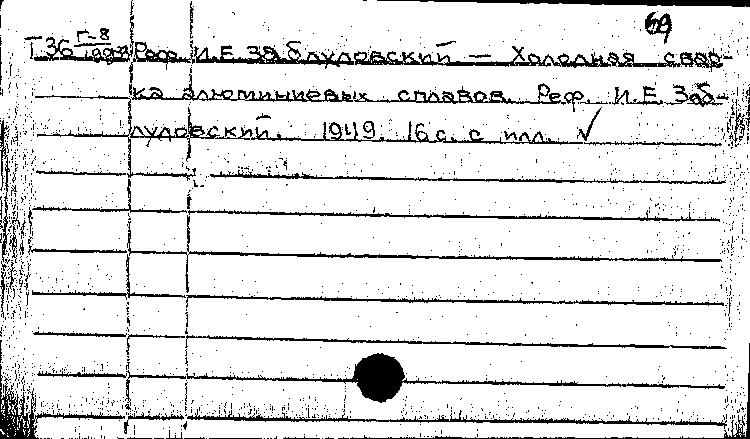 69
Т36 Г-8 Реф. И.Е. Заблуловский — Холодная свар-
ка алюминиевых сплавов. Реф. И.Е. Заб-
луловский. 1949. 16 с. с илл. ✓